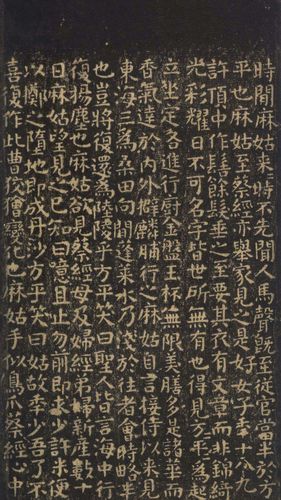 時聞麻姑來時不先聞人馬聲既至從官當半於方
平也麻姑至蔡經亦舉家見之是好女子年十八九
許頂中作髻餘髮垂之至要其衣有文章而非錦綺
光彩耀日不可名字皆世所無有也得見方平方平為起
立坐定各進行廚金盤玉杯無限美膳多是諸華而
香氣達於內外擗麟脯行之麻姑自言接待以來見
東海三為桑田向間蓬萊水乃淺於往者會時略半
也豈將復還為陸陵乎方平笑曰聖人皆言海中行
復揚塵也麻姑欲見蔡經母及婦經弟婦新產數十
日麻姑望見之已知曰噫且止勿前即求少許米便
以擲之墮地即成丹沙方平笑曰姑故年少吾了不
喜復作此曹狡獪變化也麻姑手似鳥爪蔡經心中